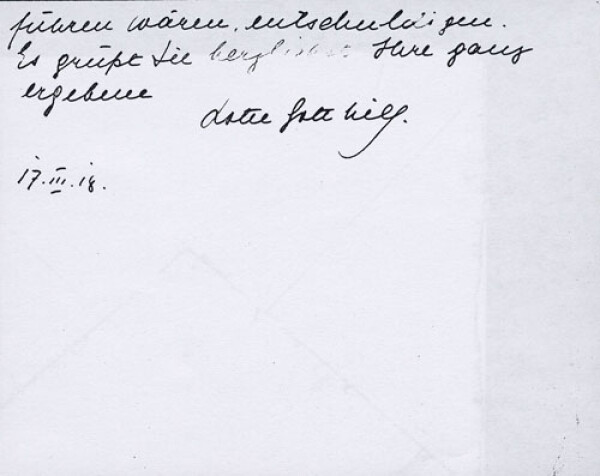 führen wären, entschuldigen.
Es grüßt Sie herzlichst Ihre ganz
ergebene
Lotte Gotthilf.
17.III.18.